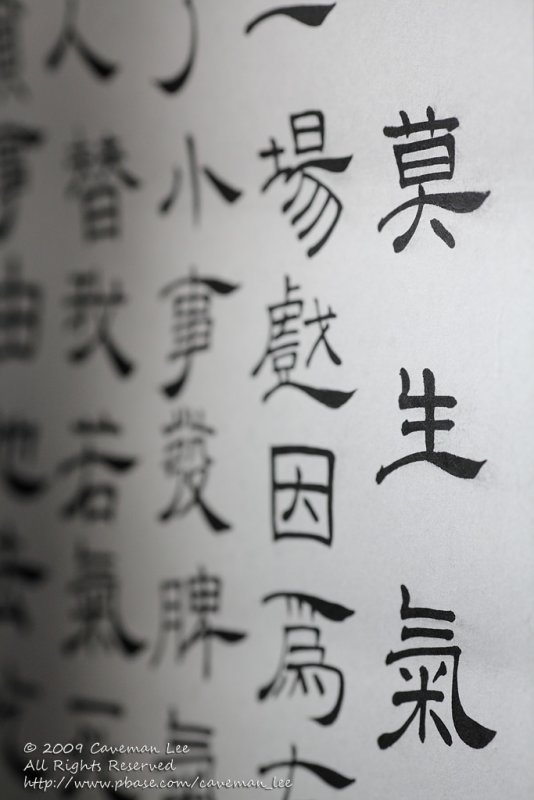 莫生氣
一場戲因爲
了小事發脾氣
人替我若氣
事由他去
© 2009 Caveman Lee
All Rights Reserved
http://www.pbase.com/caveman_lee